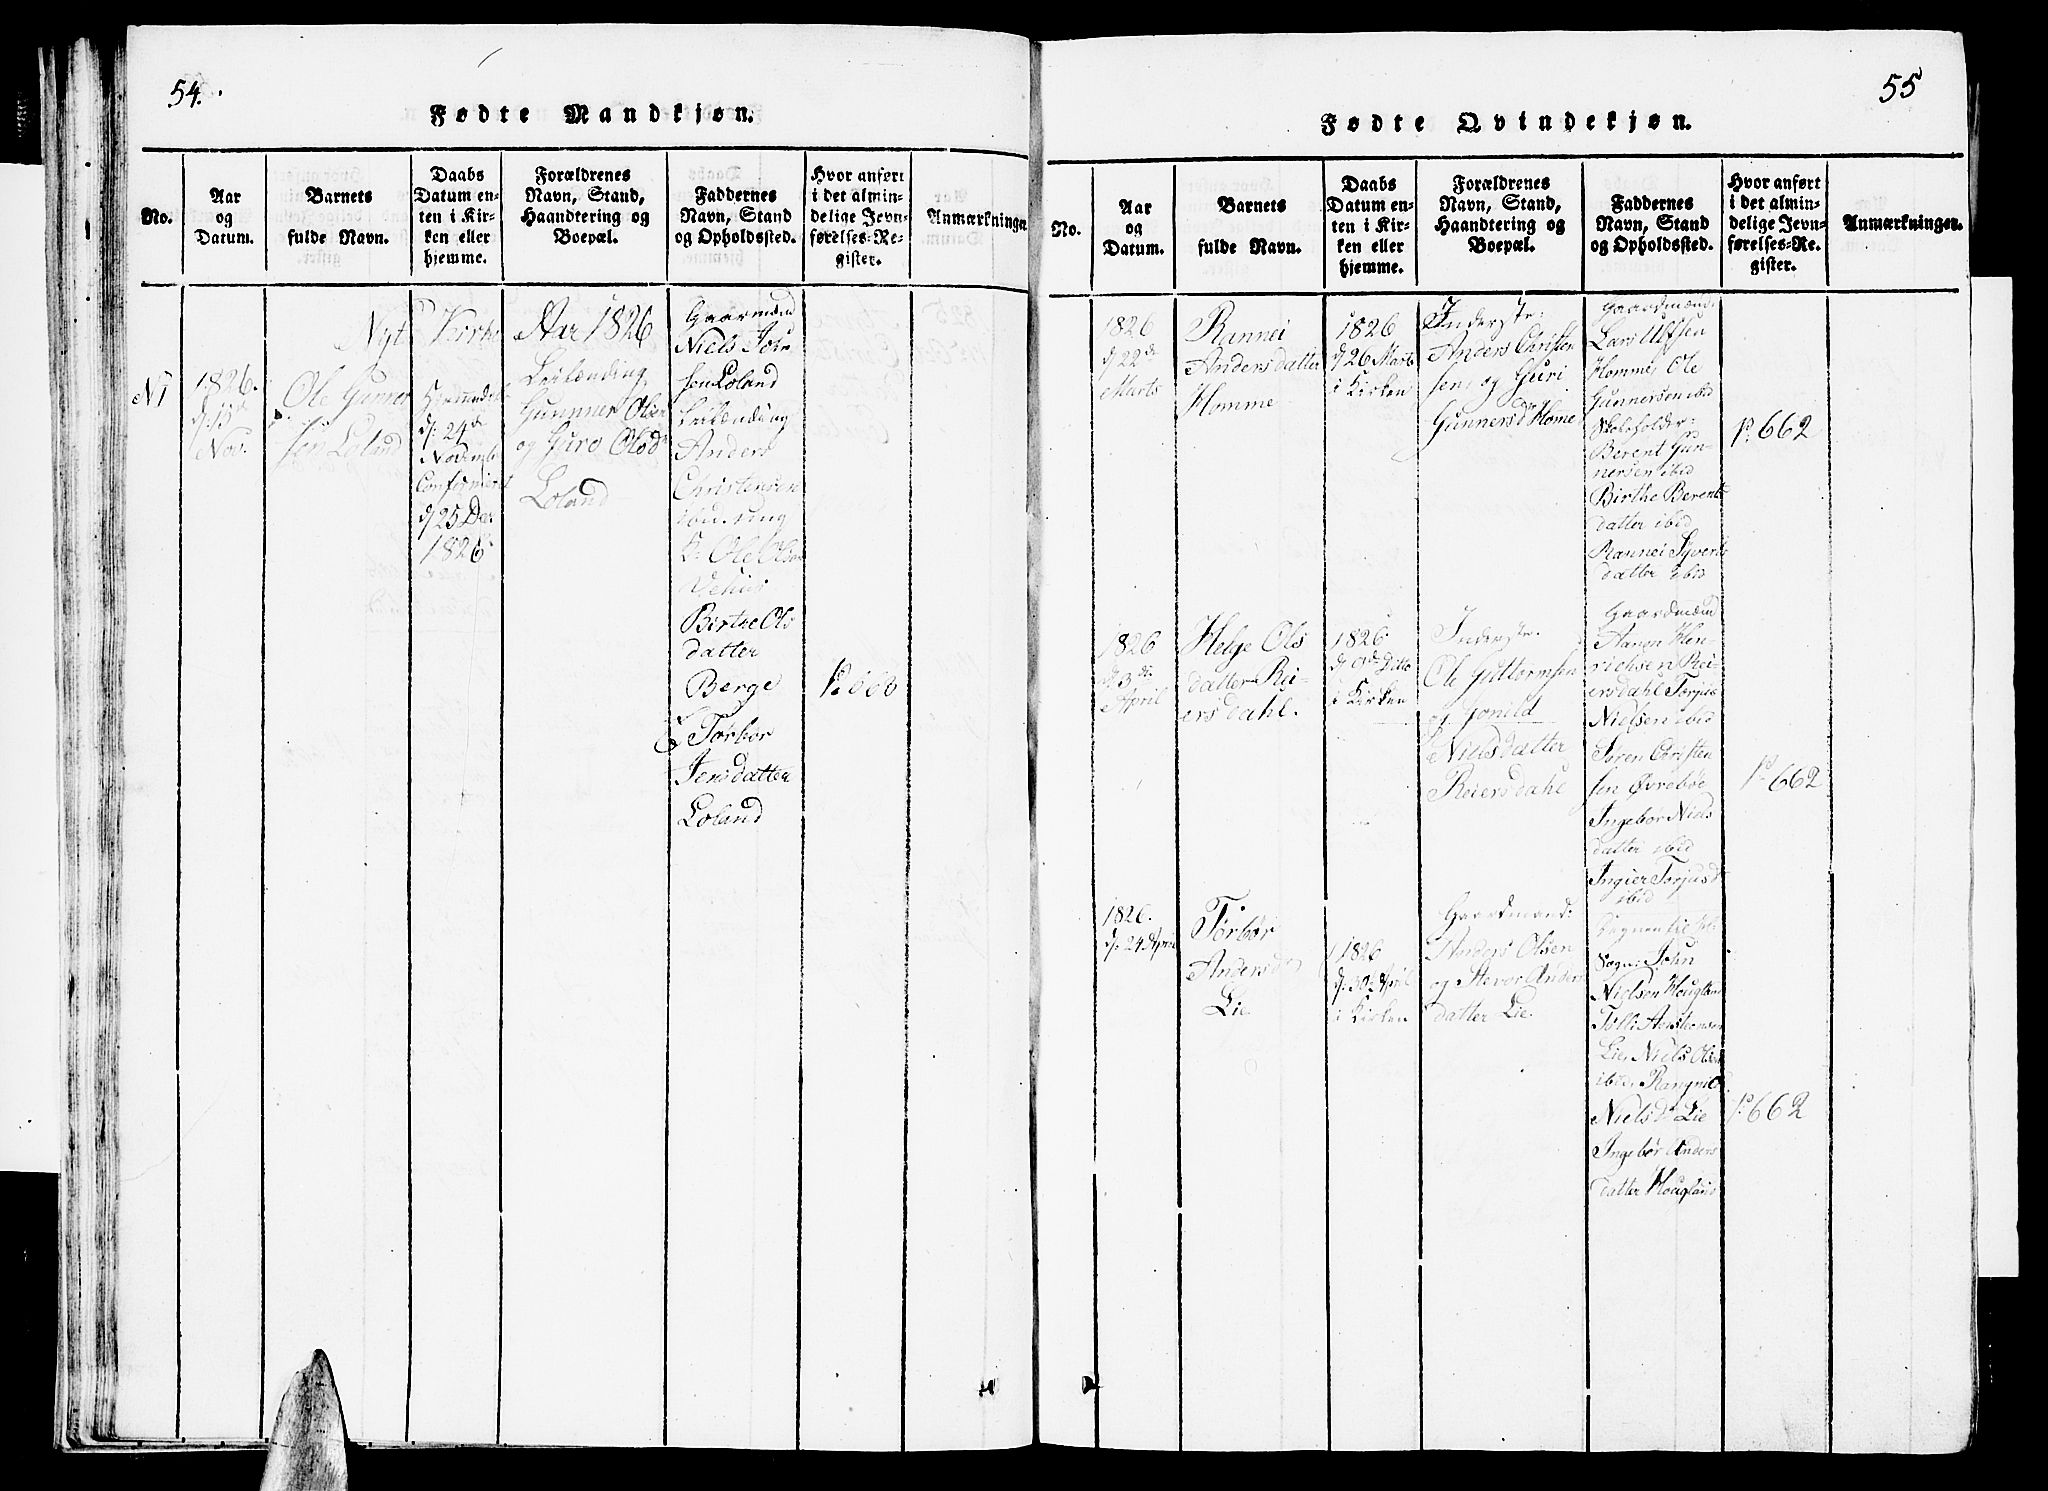 54.
Fødte Mandkjøn.
No.
Aar
og
Datum.
Barnets
fulde Navn.
Daabs
Datum en-
ten i Kir-
ken eller
hjemme.
Forældrenes
Navn, Stand,
Haandtering og
Boepæl.
Faddernes
Navn, Stand
og Opholdssted.
Hvor anført
i det almin-
delige Jevn-
førelses-Re-
gister.
Anmærkninger.
Nyt Kirke Aar 1826
N1
1826.
d: 15d
Nov.
Ole Gunner
sen Loland
Hjemmedøbt
d: 24d
Novembr
Confirmert
d/25 Dec.
1826
Leilænding
Gunnner Olsen
og Guro Olsd
Loland
Gaarmænd
Niels John
sen Loland
Leilænding
Anders
Christensen
ibid. ung
K. Ole Olsen
Vehus
Birthe Ols
datter
Berge
Torbor
Jensdatter
Loland
55
Fødte Qvindekjøn.
No.
Aar
og
Datum.
Barnets
fulde Navn.
Daabs
Datum en-
ten i Kir-
ken eller
hjemme.
Forældrenes
Navn, Stand,
Haandtering og
Boepæl.
Faddernes
Navn, Stand
og Opholdssted.
Hvor anført
i det almin-
delige Jevn-
førelses-Re-
gister.
Anmærkninger.
1826
d/22d
Marts
Rannei
Andersdatter
Homme
1826
d/26 Marts
i Kirken
Inderstr:
Anders Christen
sen, og Guri
Gunnersdr Home
Gaardmænd:
Lars Ulfsen
Homme, Ole
Gunnersen ibid
Skoleholder:
Berent Gun-
nersen ibid
Birthe Berent
datter ibid
Rannei Syverts
datter ibid
p. 662
1826
d: 3d
April
Helge Ols
datter Rei-
ersdahl.
1826
d 9d Ditto
i Kirken
Inderstr.
Ole Guttormsen
og Gonild
Nielsdatter
Reiersdahl
Gaardmænd
Aanon Hen-
richsen Rei-
ersdahl Torjus
Nielsen ibid
Søren Christen
sen Øvrebøe
Ingebør Niels
datter ibid
Ingier Torjusd
ibid
p. 662
1826.
d: 24 April
Torbør
Andersdr
Lie
1826
d: 30 April
i Kirken
Gaardmand:
Anders Olsen
og Stevor Anders
datter Lie.
Sogn: John
Nielsen Hougland
Tolli Aanstensen
Lie, Niels Olsen
ibid, Rangnild
Nielsdr Lie
Ingebør Anders
datter Hougland
p. 662